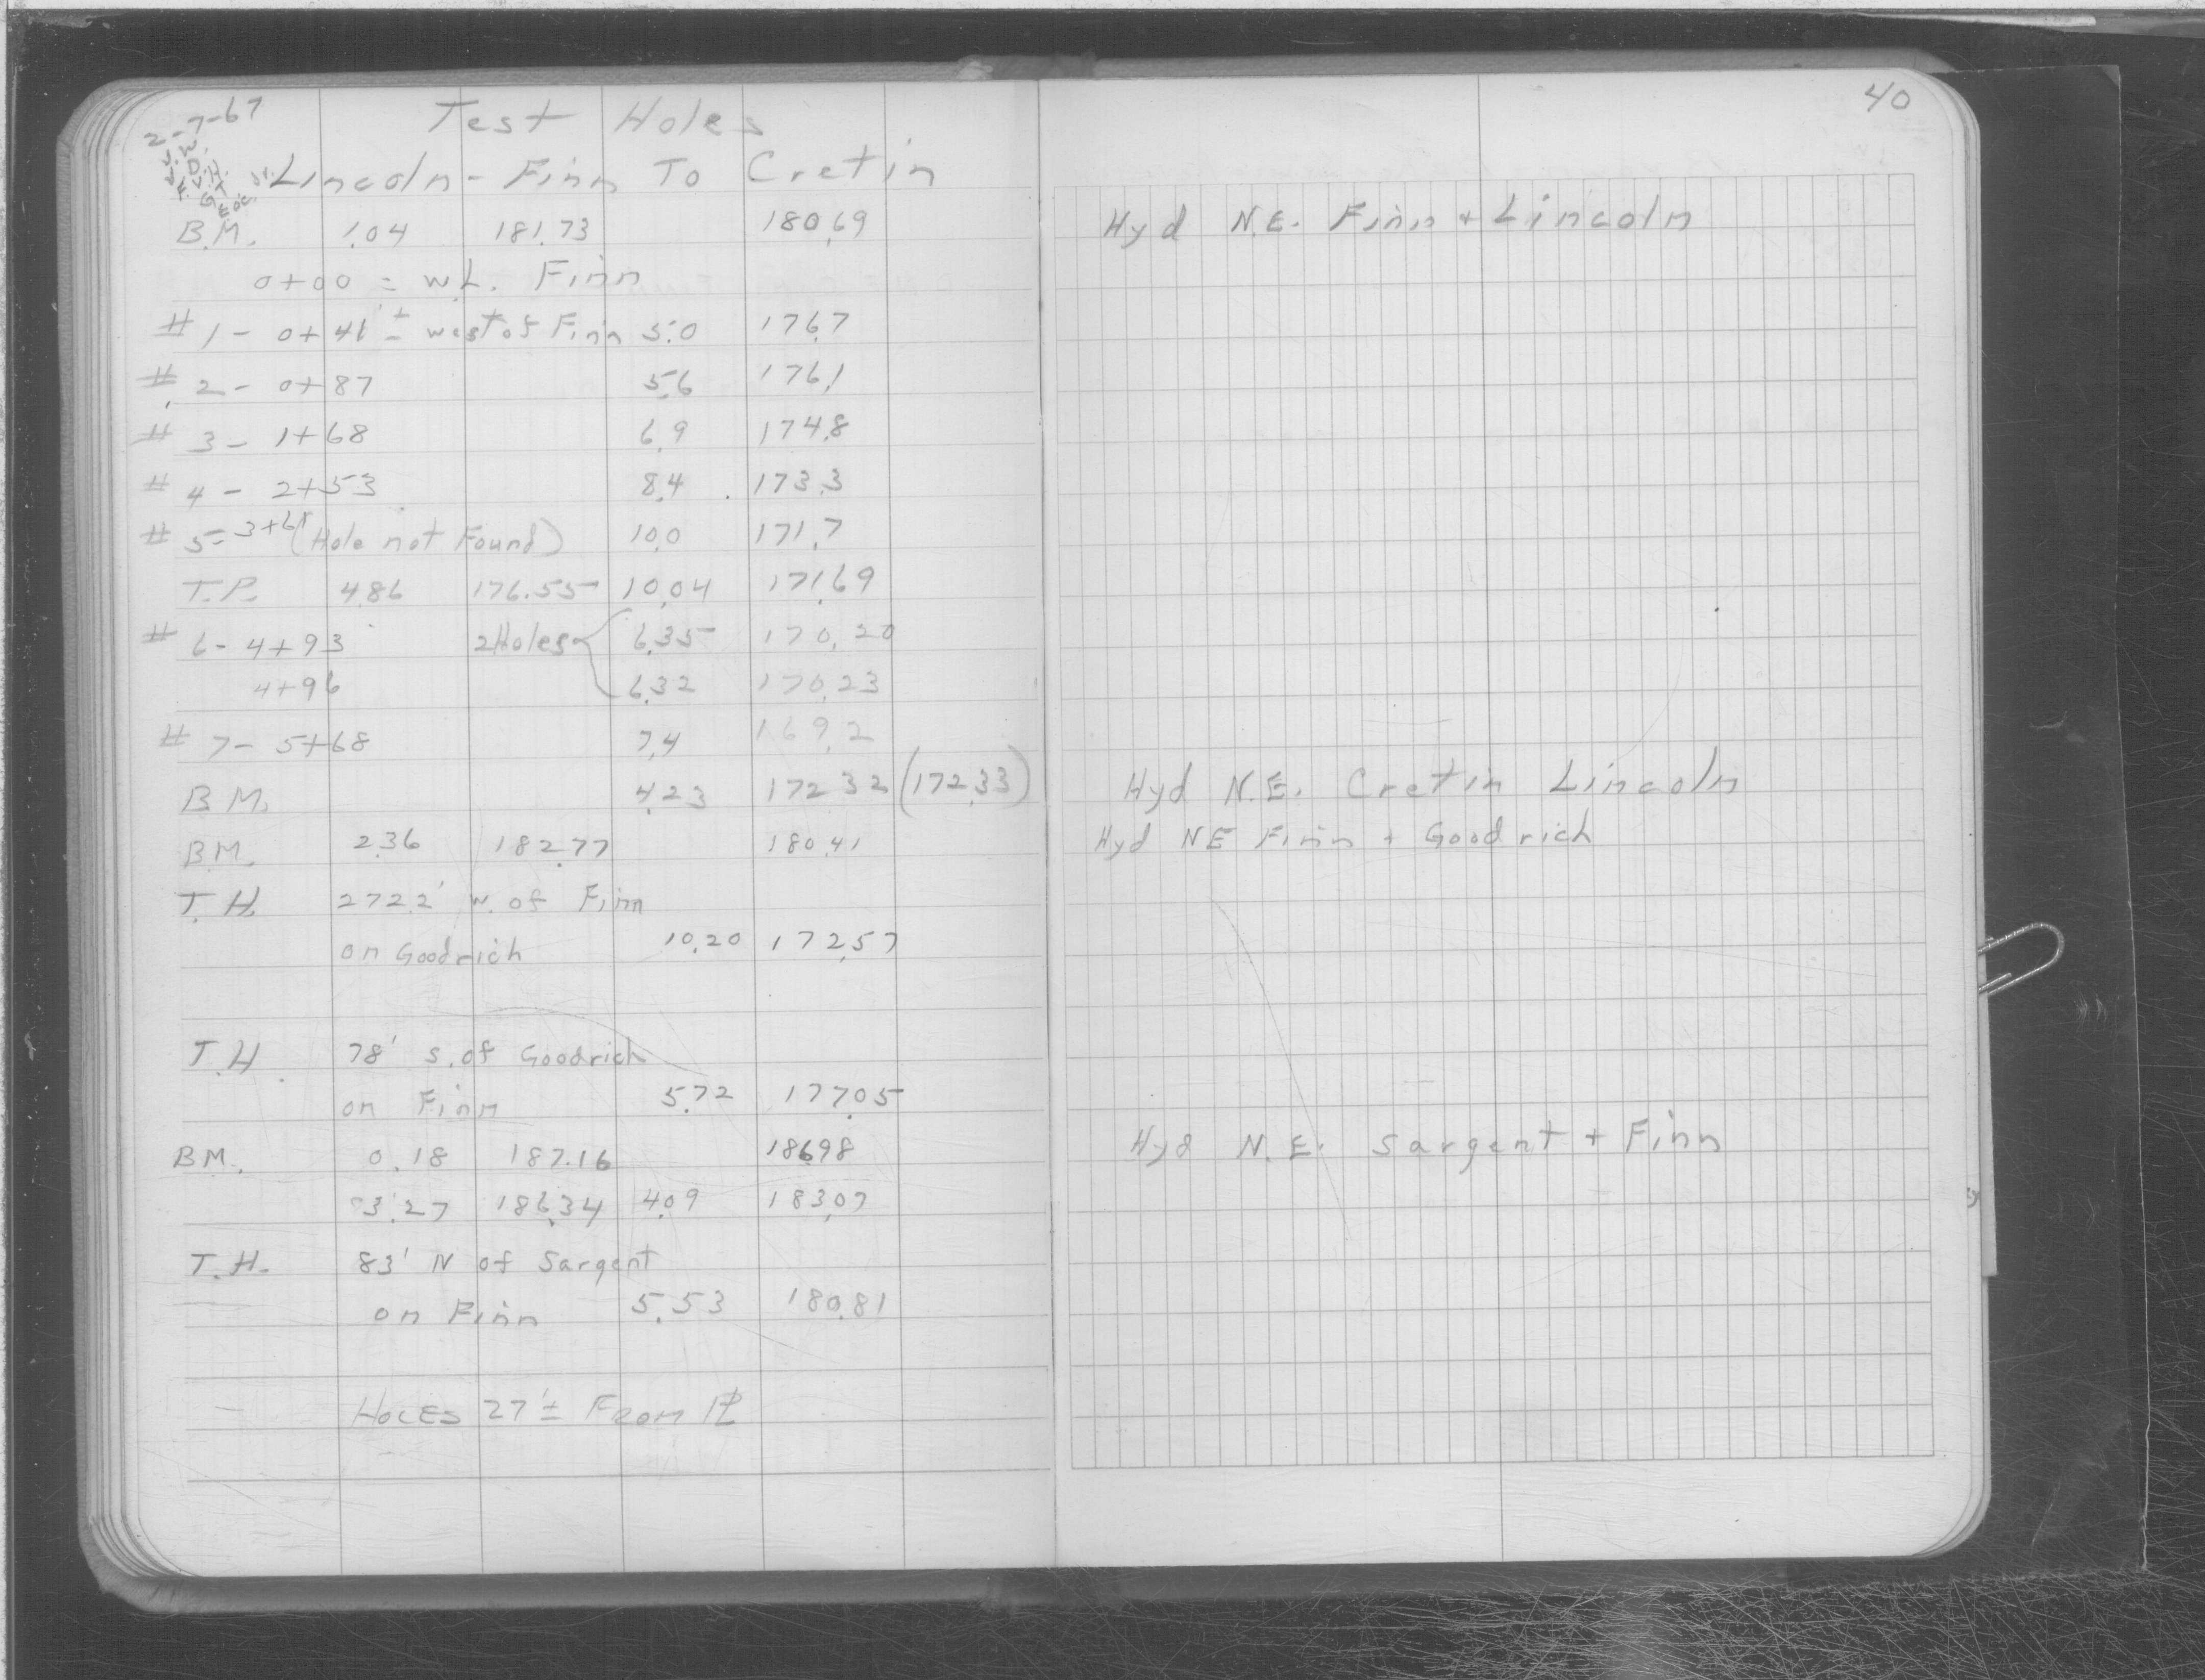 2-7-67
Test Holes
40
Lincoln - Finn To Cretin
B.M. 1.04 181.73 180.69 Hyd N.E. Finn + Lincoln
0+00 = W.L. Finn
# 1 - 0+41' ± west of Finn 5.0 176.7
# 2 - 0+87 5.6 176.1
# 3 - 1+68 6.9 174.8
# 4 - 2+53 8.4 173.3
# 5 - 3+61 (Hole not Found) 10.0 171.7
T.P. 4.86 176.55 10.04 171.69
# 6 - 4+93 2 Holes 6.35 170.20
4+96 6.32 170.23
# 7 - 5+68 7.4 169.2
B.M. 4.23 172.32 (172.33) Hyd N.E. Cretin Lincoln
B.M. 2.36 182.77 180.41 Hyd NE Finn + Goodrich
T.H. 272.2' W. of Finn
on Goodrich 10.20 172.57
T.H. 78' S. of Goodrich
on Finn 5.72 177.05
B.M. 0.18 187.16 186.98 Hyd N.E. Sargent + Finn
3.27 186.34 4.09 183.07
T.H. 83' N of Sargent
on Finn 5.53 180.81
Holes 27'± From PL